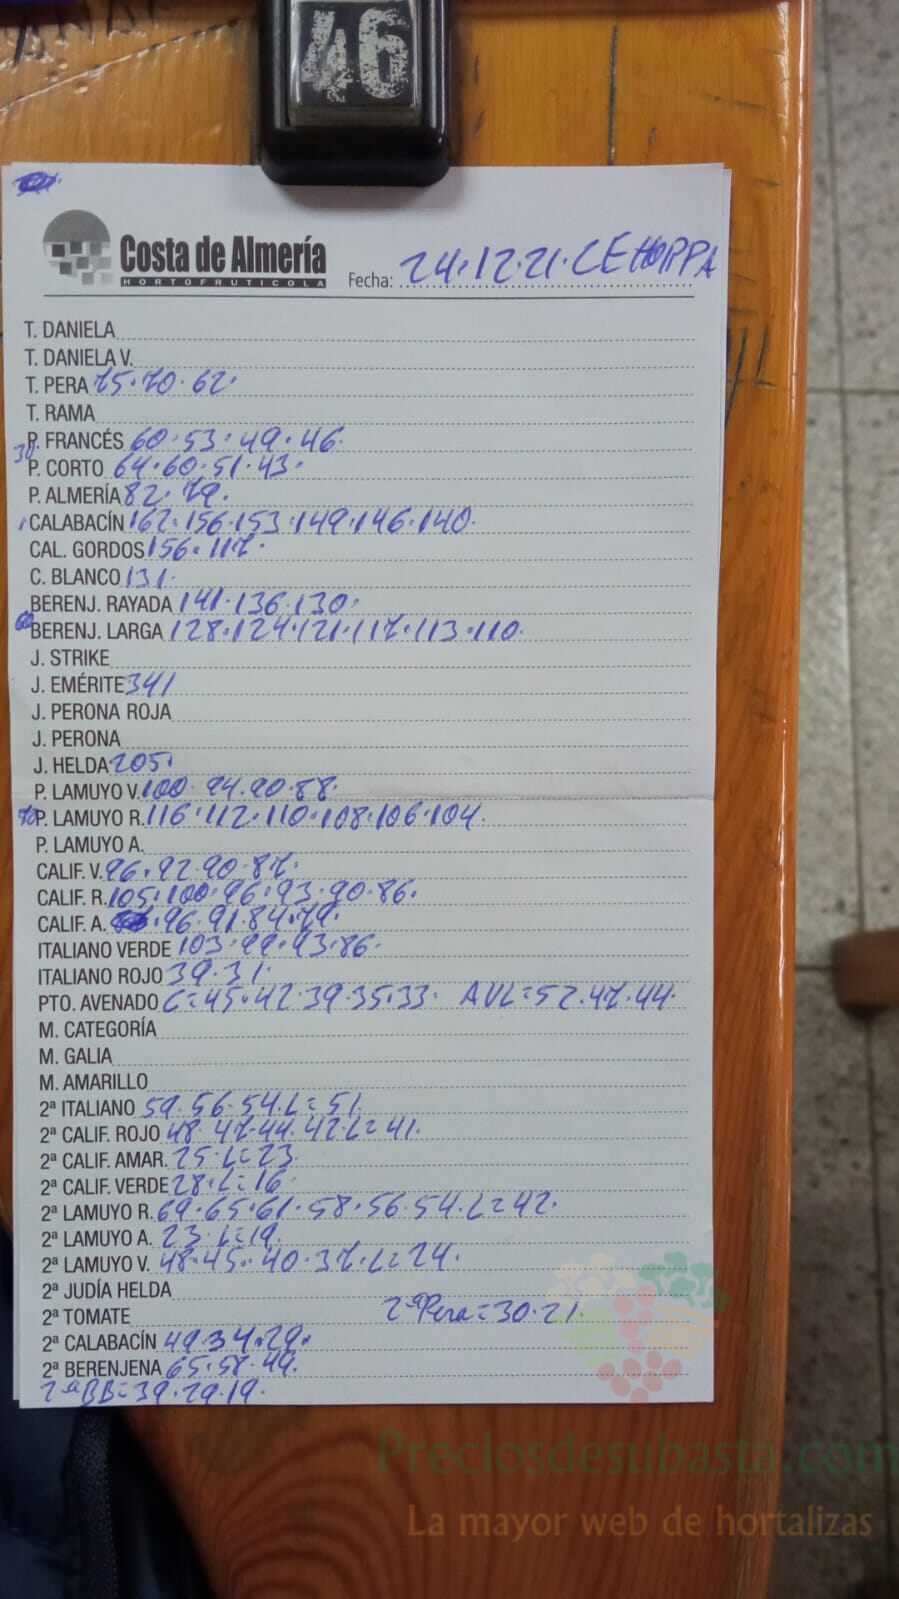 46
Costa de Almería
HORTOFRUTICOLA
Fecha: 24.12.21. CEHORPA
T. DANIELA
T. DANIELA V.
T. PERA 75.70.62.
T. RAMA
P. FRANCÉS 60.53.49.46.
30 P. CORTO 64.60.51.43.
P. ALMERÍA 82.79.
CALABACÍN 162.156.153.149.146.140.
CAL. GORDOS 156.117.
C. BLANCO 131.
BERENJ. RAYADA 141.136.130.
60 BERENJ. LARGA 128.124.121.117.113.110.
J. STRIKE
J. EMÉRITE 341
J. PERONA ROJA
J. PERONA
J. HELDA 205.
P. LAMUYO V. 100.94.90.88.
70 P. LAMUYO R. 116.112.110.108.106.104.
P. LAMUYO A.
CALIF. V. 96.92.90.87.
CALIF. R. 105.100.96.93.90.86.
CALIF. A. .96.91.84.79.
ITALIANO VERDE 103.99.93.86.
ITALIANO ROJO 39.31.
PTO. AVENADO C=45.42.39.35.33. AVL=52.47.44.
M. CATEGORÍA
M. GALIA
M. AMARILLO
2ª ITALIANO 59.56.54.L=51.
2ª CALIF. ROJO 48.47.44.42.L=41.
2ª CALIF. AMAR. 25.L=23.
2ª CALIF. VERDE 28.L=16.
2ª LAMUYO R. 69.65.61.58.56.54.L=42.
2ª LAMUYO A. 23.L=19.
2ª LAMUYO V. 48.45.40.37.L=24.
2ª JUDÍA HELDA
2ª TOMATE 2ªPera=30.21.
2ª CALABACÍN 49.34.29.
2ª BERENJENA 65.58.49.
2ªBB=39.29.19.
Preciosdesubasta.com
La mayor web de hortalizas